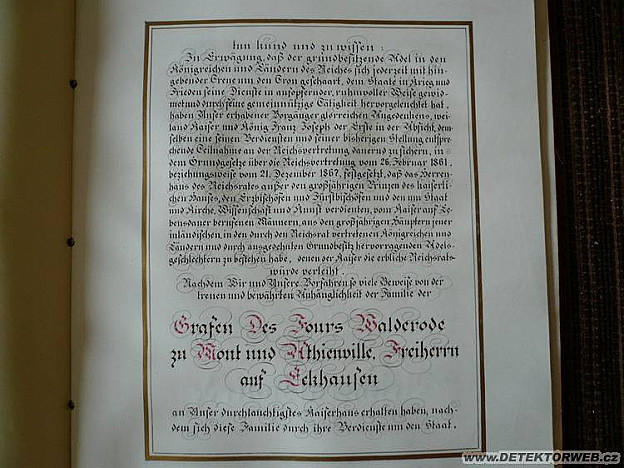 tun kund und zu wissen:
In Erwägung, daß der grundbesitzende Adel in den
Königreichen und Ländern des Reiches sich jederzeit mit hin-
gebender Treue um den Tron geschaart, dem Staate in Krieg und
Frieden seine Dienste in aufopfernder, ruhmvoller Weise gewid-
met und durch seine gemeinnützige Tätigkeit hervorgeleuchtet hat,
haben Unser erhabener Vorgänger glorreichen Angedenkens, wei-
land Kaiser und König Franz Joseph der Erste in der Absicht, dem-
selben eine seinen Verdiensten und seiner bisherigen Stellung entspre-
chende Teilnahme an der Reichsvertretung dauernd zu sichern, in
dem Grundgesetze über die Reichsvertretung vom 26. Februar 1861,
beziehungsweise vom 21. Dezember 1867, festgesetzt, daß das Herren-
haus des Reichsrates außer den großjährigen Prinzen des kaiserli-
chen Hauses, den Erzbischöfen und Fürstbischöfen und den um Staat
und Kirche, Wissenschaft und Kunst verdienten, vom Kaiser auf Le-
bensdauer berufenen Männern, aus den großjährigen Häuptern jener
inländischen, in den durch den Reichsrat vertretenen Königreichen und
Ländern und durch ausgedehnten Grundbesitz hervorragenden Adels-
geschlechtern zu bestehen habe, denen der Kaiser die erbliche Reichsrats-
würde verleiht.
Nachdem Wir und Unsere Vorfahren so viele Beweise von der
treuen und bewährten Anhänglichkeit der Familie der
Grafen Des Fours Walderode
zu Mont und Athienville, Freiherrn
auf Eckhausen
an Unser durchlauchtigstes Kaiserhaus erhalten haben, nach-
dem sich diese Familie durch ihre Verdienste um den Staat,
www.DETEKTORWEB.cz